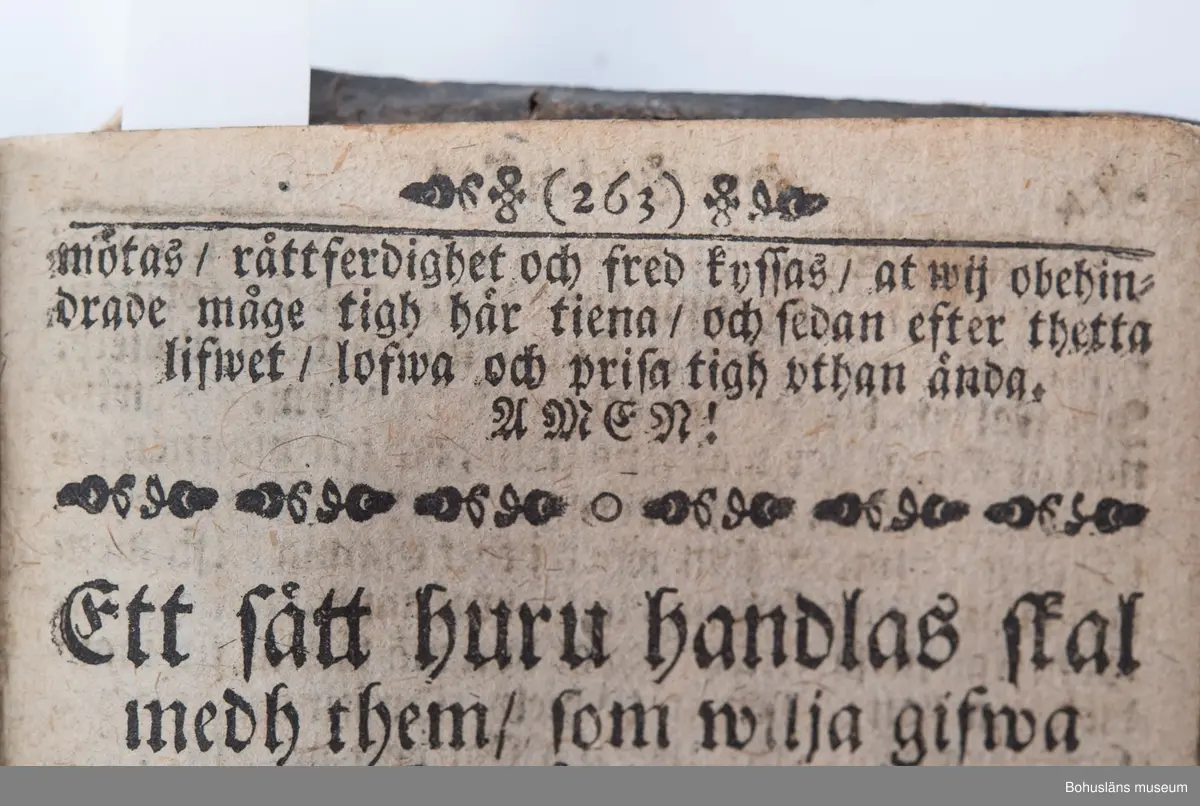 (263)
mötas / rättferdighet och fred kyssas / at wij obehin-
drade måge tigh här tiena / och sedan efter thetta
lifwet / lofwa och prisa tigh vthan ända.
AMEN!
Ett sätt huru handlas skal
medh them / som wilja gifwa
Bohusläns museum